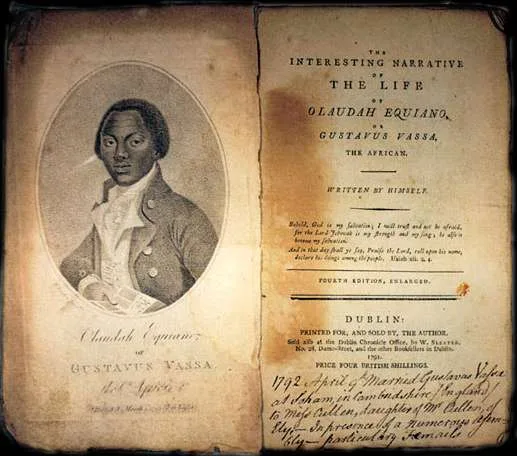 Olaudah Equiano;
or
GUSTAVUS VASSA,
the African
THE
INTERESTING NARRATIVE
OF
THE LIFE
OF
OLAUDAH EQUIANO,
OR
GUSTAVUS VASSA,
THE AFRICAN.
WRITTEN BY HIMSELF.
Behold, God is my salvation; I will trust and not be afraid,
for the Lord Jehovah is my strength and my song; he also is
become my salvation.
And in that day shall ye say, Praise the Lord, call upon his name,
declare his doings among the people. Isaiah xii. 2, 4.
FOURTH EDITION, ENLARGED.
DUBLIN:
PRINTED FOR, AND SOLD BY, THE AUTHOR.
Sold also at the Dublin Chronicle Office, by W. SLEATER,
No. 28, Dame-Street, and the other Booksellers in Dublin.
1791.
PRICE FOUR BRITISH SHILLINGS.
1792 April 9th Married Gustavus Vassa
at Soham, in Cambridshire / England /
to Miss Cullen, daughter of Mr Cullen, of
Ely — In presence of a numerous assem-
bly — particulary Femaels